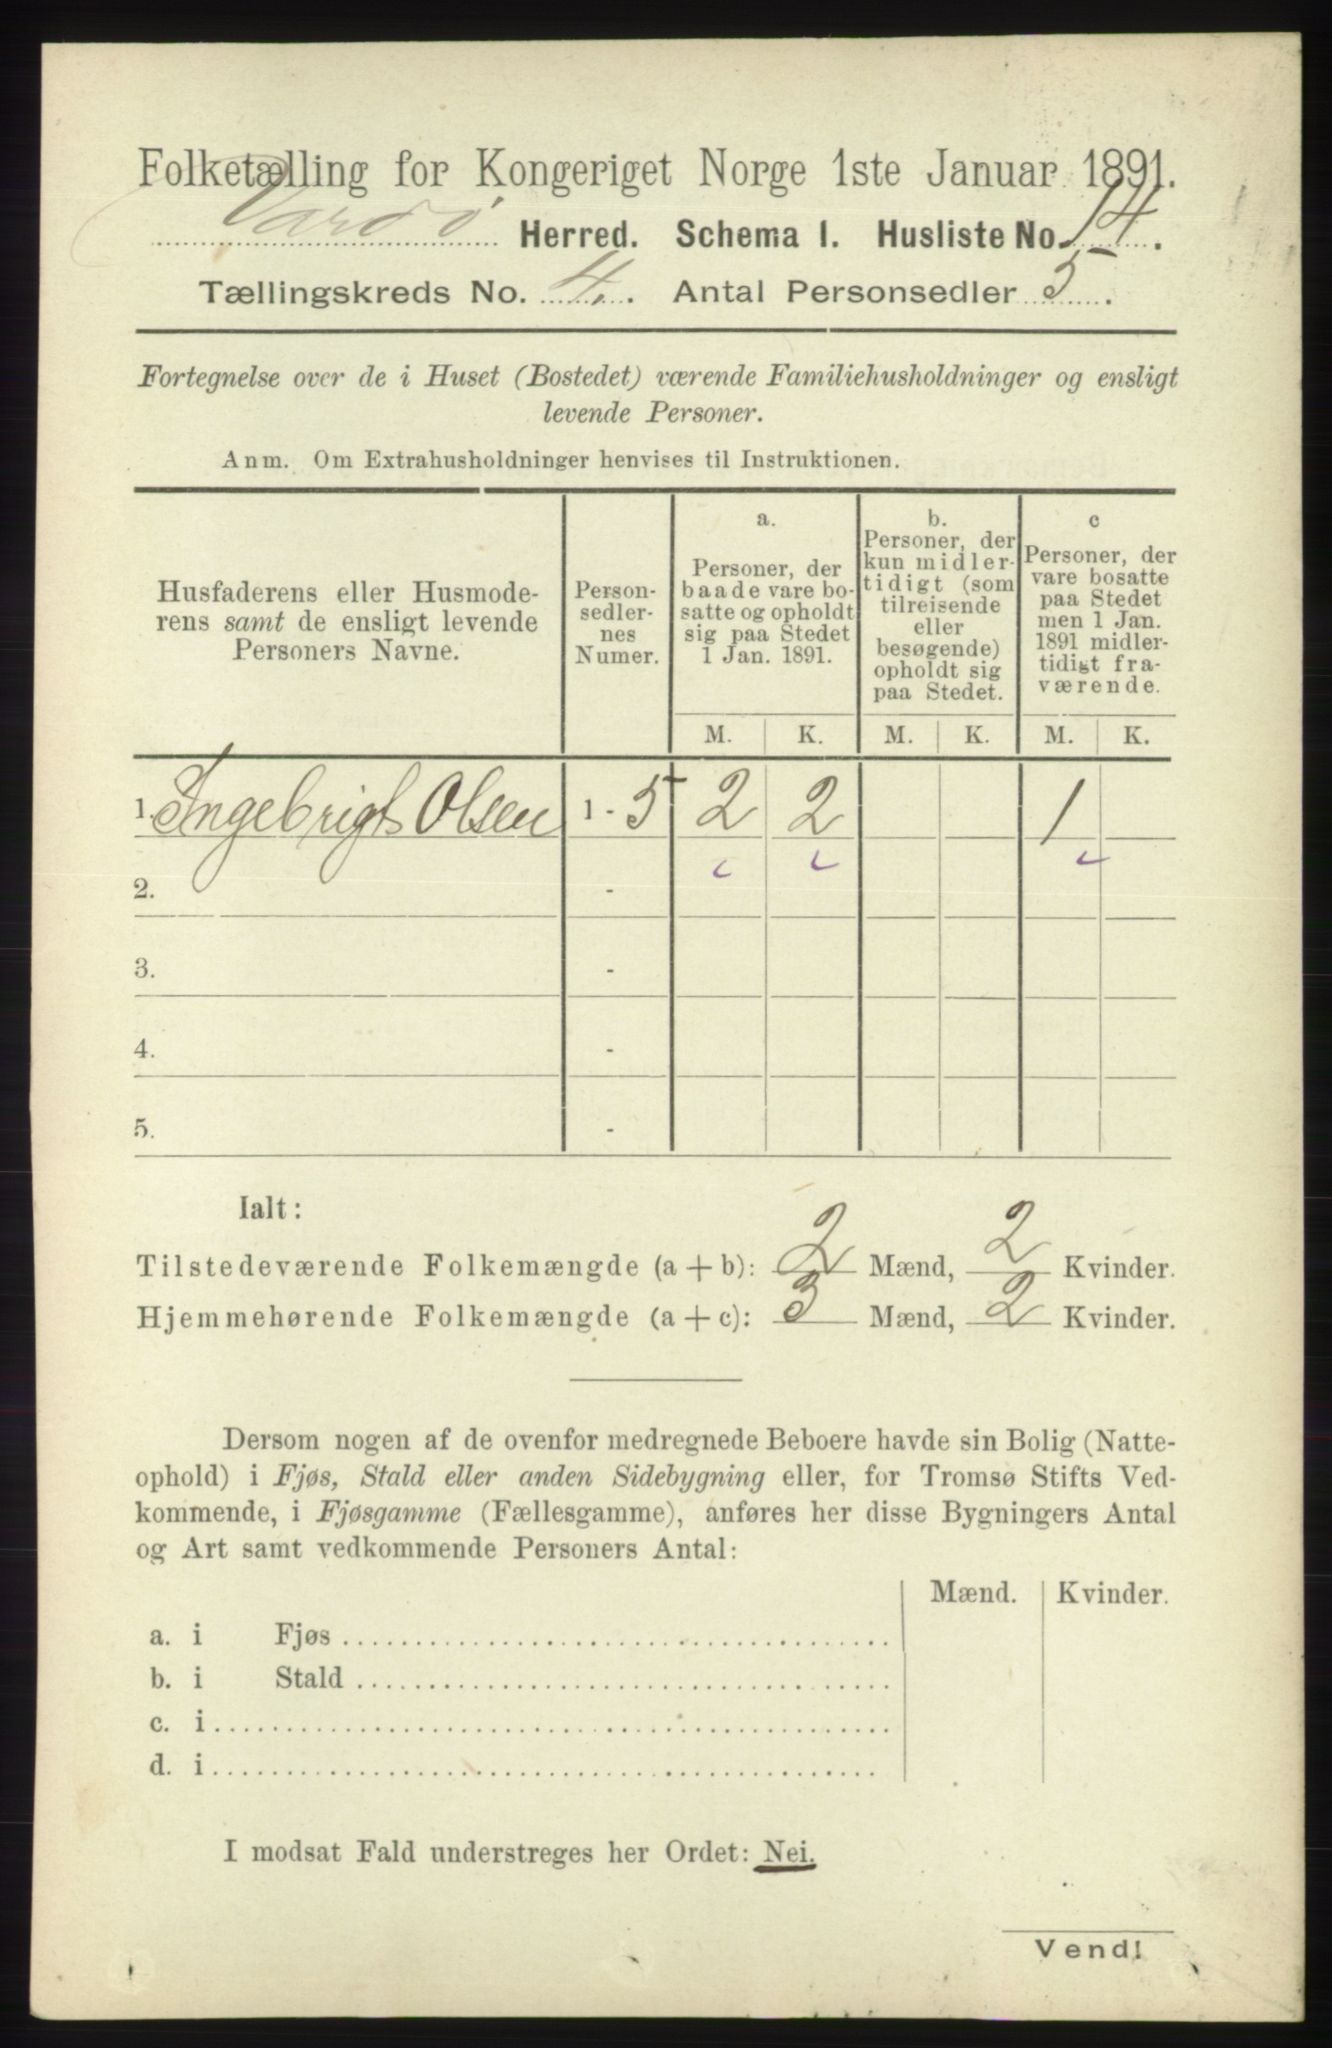 Folketælling for Kongeriget Norge 1ste Januar 1891.
Vardø Herred. Schema I. Husliste No. 14.
Tællingskreds No. 4. Antal Personsedler 5.
Fortegnelse over de i Huset (Bostedet) værende Familiehusholdninger og ensligt
levende Personer.
Anm. Om Extrahusholdninger henvises til Instruktionen.
Husfaderens eller Husmode-
rens samt de ensligt levende
Personers Navne.
Person-
sedler-
nes
Numer.
a.
Personer, der
baade vare bo-
satte og opholdt
sig paa Stedet
1 Jan. 1891.
b.
Personer, der
kun midler-
tidigt (som
tilreisende
eller
besøgende)
opholdt sig
paa Stedet.
c
Personer, der
vare bosatte
paa Stedet
men 1 Jan.
1891 midler-
tidigt fra-
værende.
M. K. M. K. M. K.
1. Ingebrigt Olsen 1 - 5 2 2 1
2. -
3. -
4. -
5. -
Ialt:
Tilstedeværende Folkemængde (a + b): 2 Mænd, 2 Kvinder.
Hjemmehørende Folkemængde (a + c): 3 Mænd, 2 Kvinder.
Dersom nogen af de ovenfor medregnede Beboere havde sin Bolig (Natte-
ophold) i Fjøs, Stald eller anden Sidebygning eller, for Tromsø Stifts Ved-
kommende, i Fjøsgamme (Fællesgamme), anføres her disse Bygningers Antal
og Art samt vedkommende Personers Antal:
Mænd. Kvinder.
a. i Fjøs
b. i Stald
c. i
d. i
I modsat Fald understreges her Ordet: Nei.
Vend!